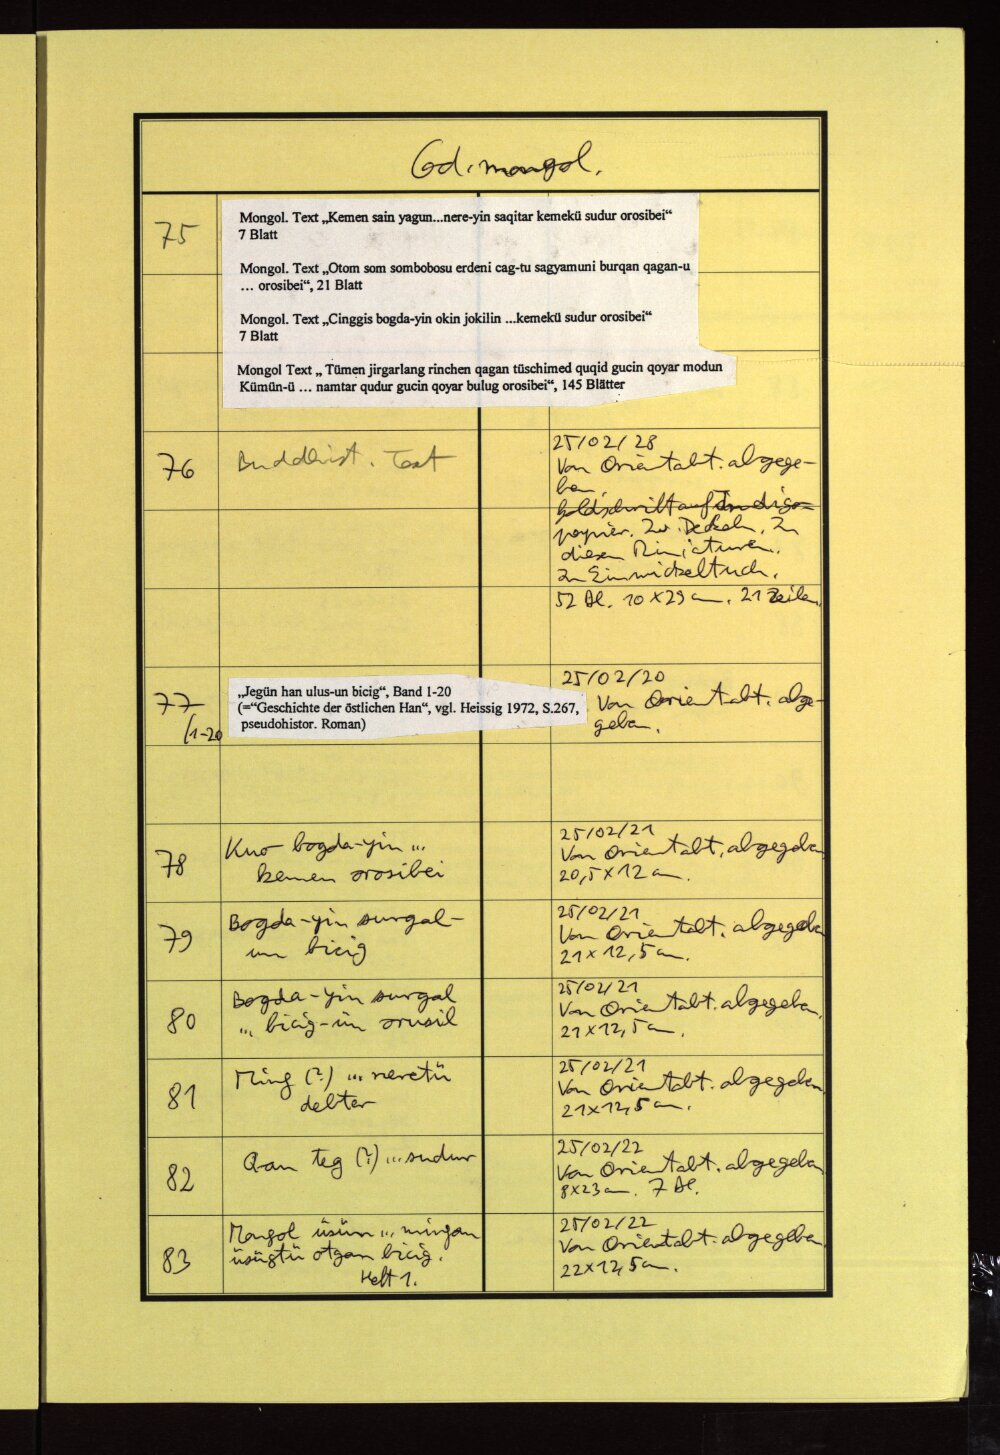 Cod. mongol.
75
Mongol. Text „Kemen sain yagun...nere-yin saqitar kemekü sudur orosibei“
7 Blatt
Mongol. Text „Otom som sombobosu erdeni cag-tu sagyamuni burqan qagan-u
... orosibei“, 21 Blatt
Mongol. Text „Cinggis bogda-yin okin jokilin ...kemekü sudur orosibei“
7 Blatt
Mongol Text „ Tümen jirgarlang rinchen qagan tüschimed quqid gucin qoyar modun
Kümün-ü ... namtar qudur gucin qoyar bulug orosibei“, 145 Blätter
76
Buddhist. Text
25/02/28
Von Orientabt. abgege-
ben.
Goldschrift auf Indigo-
papier. Zw. Deckeln. In
diesen Miniaturen.
In Einwickeltuch.
52 Bl. 10 x 29 cm. 21 Zeilen.
77
/1-20
„Jegün han ulus-un bicig“, Band 1-20
(=“Geschichte der östlichen Han“, vgl. Heissig 1972, S.267,
pseudohistor. Roman)
25/02/20
Von Orientabt. abge-
geben.
78
Kuo bogda-yin ...
kemen orosibei
25/02/21
Von Orientabt. abgegeben
20,5 x 12 cm.
79
Bogda-yin surgal-
un bicig
25/02/21
Von Orientabt. abgegeben
21 x 12,5 cm.
80
Bogda-yin surgal
... bicig-ün orusil
25/02/21
Von Orientabt. abgegeben.
21 x 12,5 cm.
81
Ming (?) ... neretü
debter
25/02/21
Von Orientabt. abgegeben
21 x 12,5 cm.
82
Qan teg (?) ... sudur
25/02/22
Von Orientabt. abgegeben
8 x 23 cm. 7 Bl.
83
Mongol üsün ... mingan
üsügtü otgan bicig.
Heft 1.
25/02/22
Von Orientabt. abgegeben
22 x 12,5 cm.